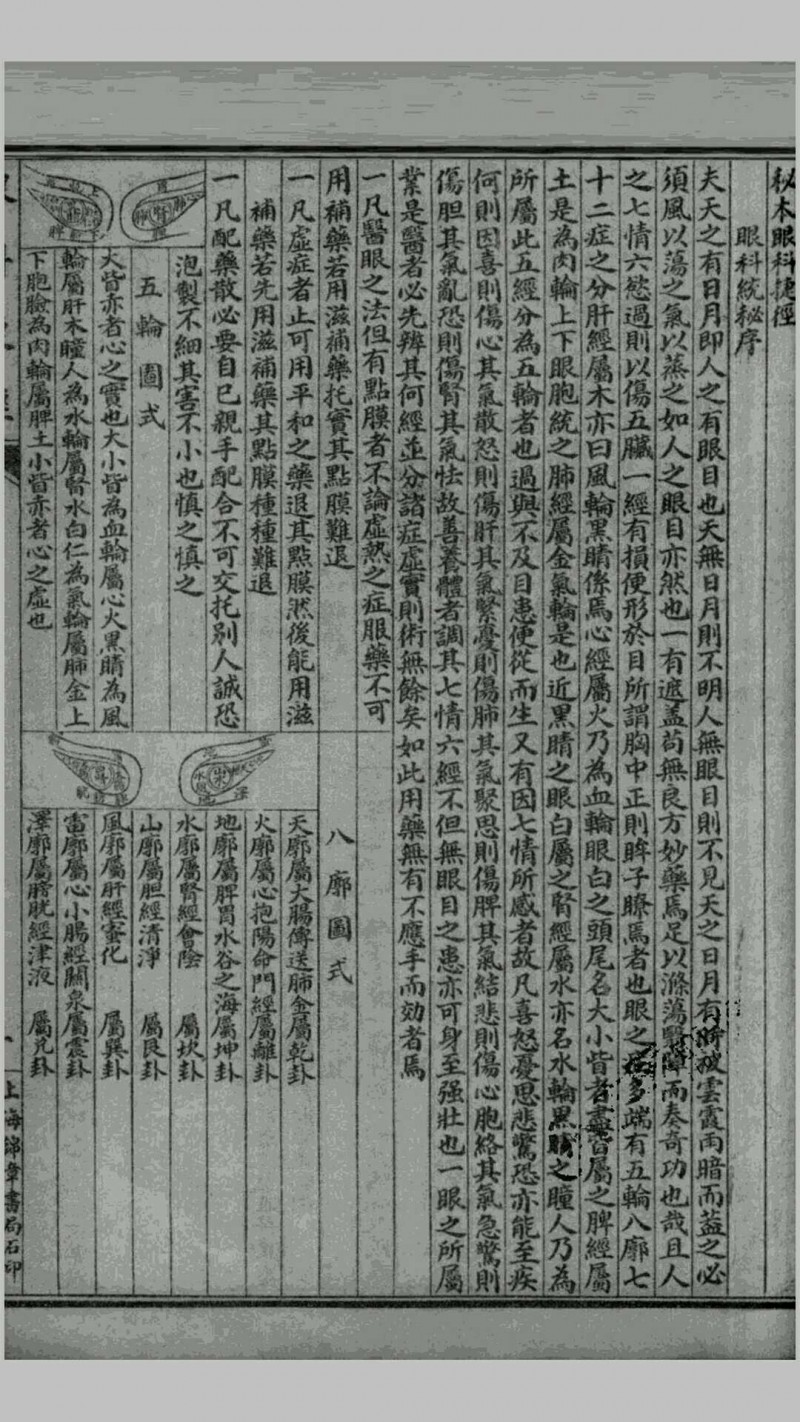 秘本眼科捷徑
眼科統秘序
夫天之有日月即人之有眼目也天無日月則不明人無眼目則不見天之日月有時被雲霞雨暗而蓋之必
須風以蕩之氣以蒸之如人之眼目亦然也一有遮蓋苟無良方妙藥焉足以滌蕩翳障而奏奇功也哉且人
之七情六慾過則以傷五臟一經有損便形於目所謂胸中正則眸子瞭焉者也眼之多端有五輪八廓七
十二症之分肝經屬木亦曰風輪黑睛係焉心經屬火乃為血輪眼白之頭尾名大小眥者盡皆屬之脾經屬
土是為肉輪上下眼胞統之肺經屬金氣輪是也近黑睛之眼白屬之腎經屬水亦名水輪黑睛之瞳人乃為
所屬此五經分為五輪者也過與不及目患便從而生又有因七情所感者故凡喜怒憂思悲驚恐亦能至疾
何則因喜則傷心其氣散怒則傷肝其氣緊憂則傷肺其氣聚思則傷脾其氣結悲則傷心胞絡其氣急驚則
傷胆其氣亂恐則傷腎其氣怯故善養體者調其七情六經不但無眼目之患亦可身至强壯也一眼之所屬
業是醫者必先辨其何經並分諸症虛實則術無餘矣如此用藥無有不應手而効者焉
一凡醫眼之法但有點膜者不論虛熱之症服藥不可
用補藥若用滋補藥托實其點膜難退
一凡虛症者止可用平和之藥退其點膜然後能用滋
補藥若先用滋補藥其點膜種種難退
一凡配藥散必要自已親手配合不可交托别人誠恐
泡製不細其害不小也慎之慎之
五輪圖式
大眥赤者心之實也大小眥為血輪屬心火黑睛為風
輪屬肝木瞳人為水輪屬腎水白仁為氣輪屬肺金上
下胞臉為肉輪屬脾土小眥赤者心之虛也
八廓圖式
天廓屬大腸傳送肺金屬乾卦
火廓屬心抱陽命門經屬離卦
地廓屬脾胃水谷之海屬坤卦
水廓屬腎經會陰 屬坎卦
山廓屬胆經清淨 屬艮卦
風廓屬肝經蜜化 屬巽卦
雷廓屬心小腸經關泉屬震卦
澤廓屬膀胱經津液 屬兑卦
上海錦章書局石印